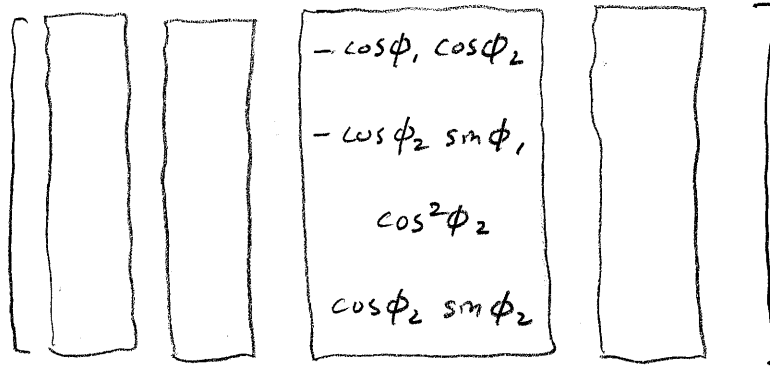 - cosϕ₁ cosϕ₂
- cosϕ₂ sinϕ₁
cos²ϕ₂
cosϕ₂ sinϕ₂